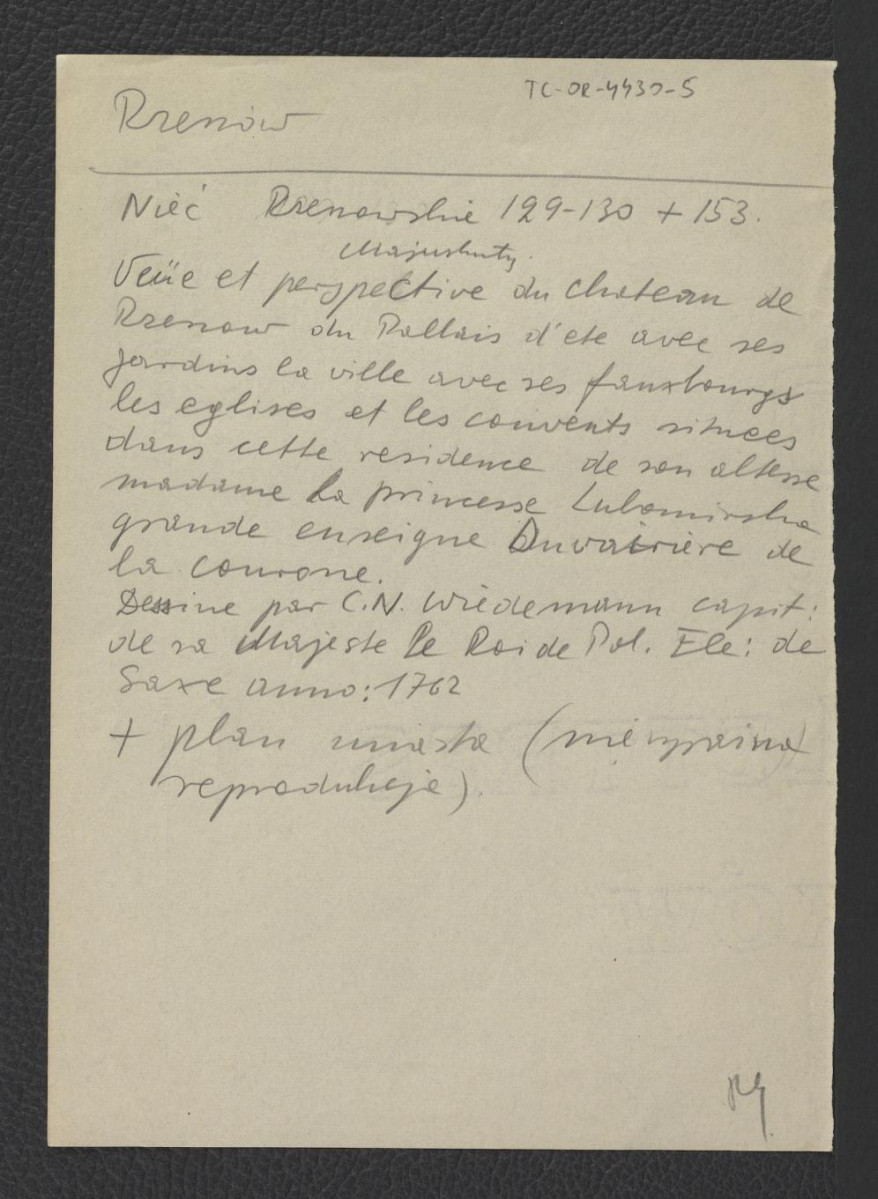 TC-OR-4430-5
Rzeszów
Nieć Rzeszowskie 129-130 + 153.
Majuskuły.
Veüe et perspective du chateau de
Rzeszow du Pallais d'ete avec ses
jardins la ville avec ses fauxbourgs
les eglises et les couvents situees
dans cette residence de son altesse
madame la princesse Lubomirska
grande enseigne Duvairière de
la courone.
Dessine par C.N. Wiedemann capit:
de sa Majeste le Roi de Pol. Ele: de
Saxe anno: 1762
+ plan miasta (nie wyraźna
reprodukcja).